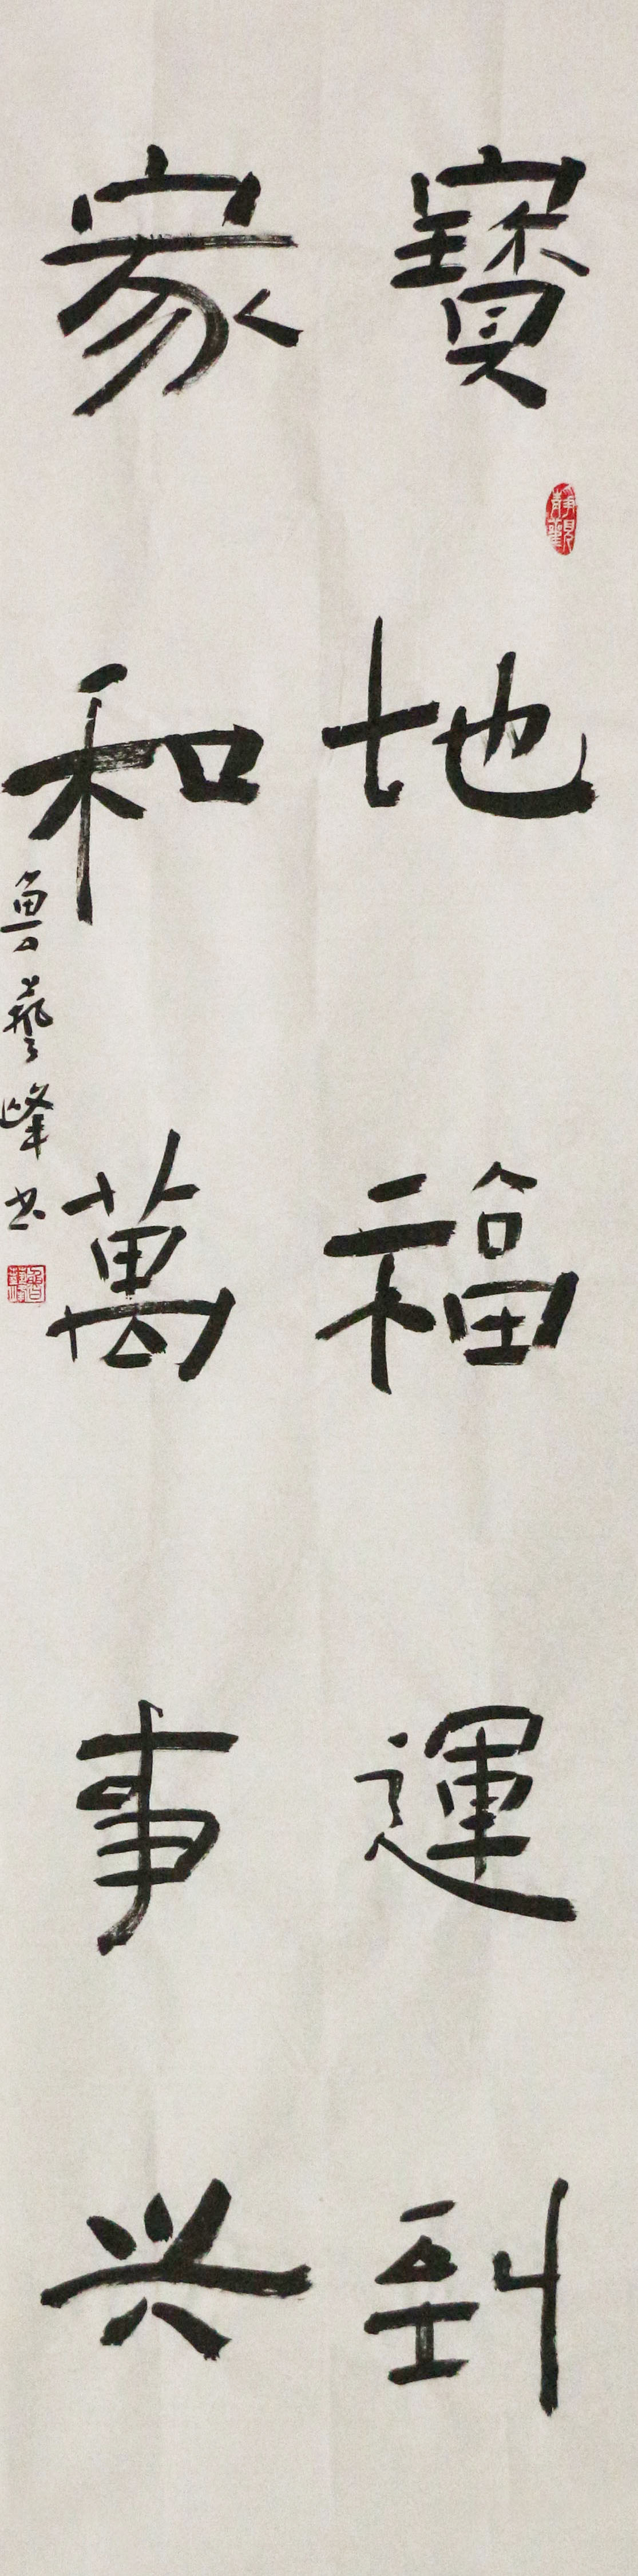 寶地福運到
家和萬事兴
魯藝峰书
靜觀